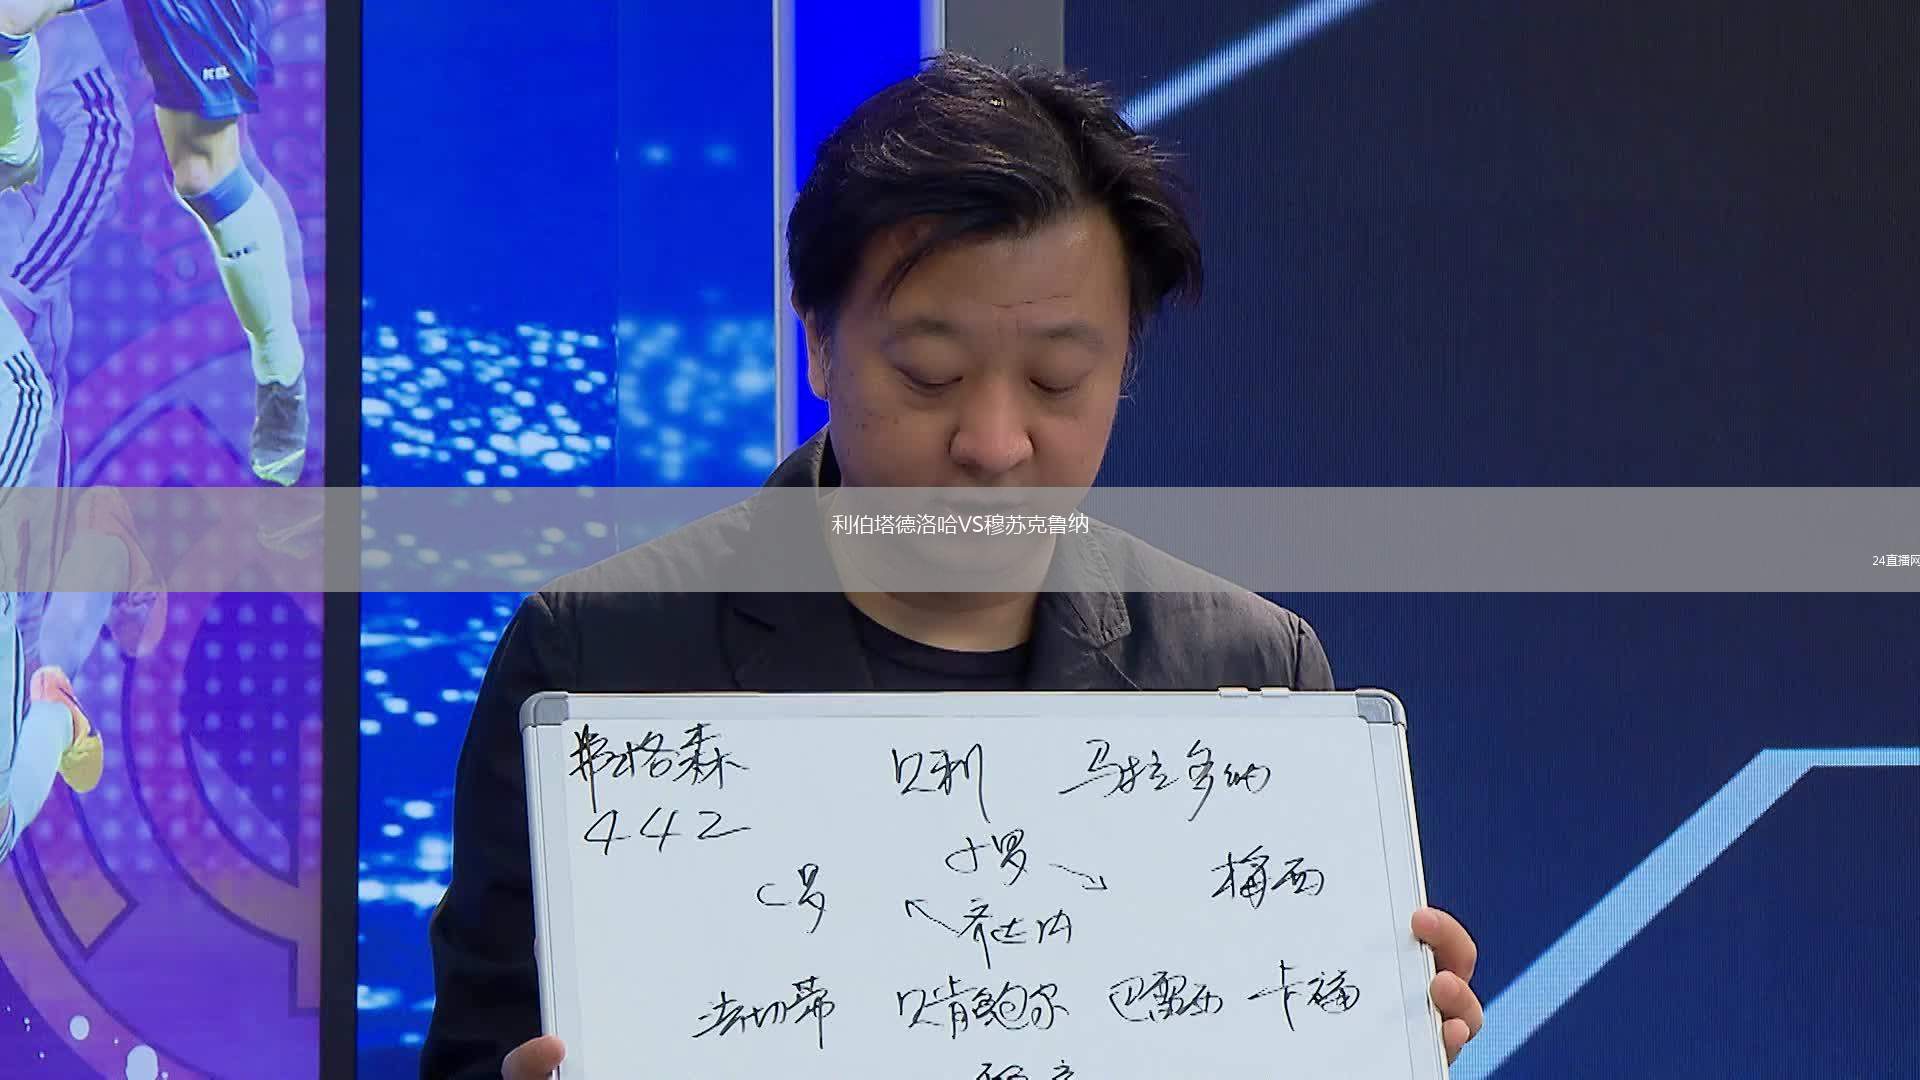 利伯塔德洛哈VS穆苏克鲁纳
24直播网
弗格森 贝利 马拉多纳
442
小罗
C罗 梅西
齐达内
法切蒂 贝肯鲍尔 巴雷西 卡福